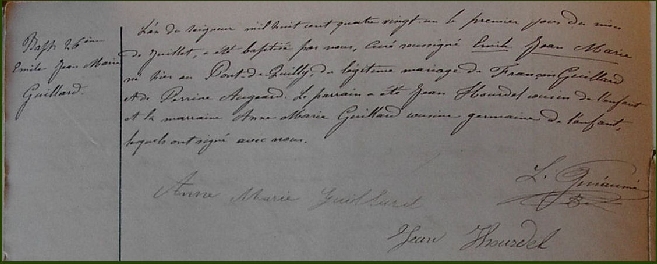 Bapt. 26ème
Emile Jean Marie
Guillard.
L'an du seigneur mil huit cent quatre vingt un le premier jour du mois
de Juillet, a été baptisé par nous, curé soussigné Emile Jean Marie
né hier au Pont-de-Quilly, du légitime mariage de François Guillard
et de Perrine Augeard. Le parrain a été Jean Hourdel cousin de l'enfant
et la marraine Anne Marie Guillard cousine germaine de l'enfant,
lesquels ont signé avec nous.
Anne Marie
Jean Hourdel